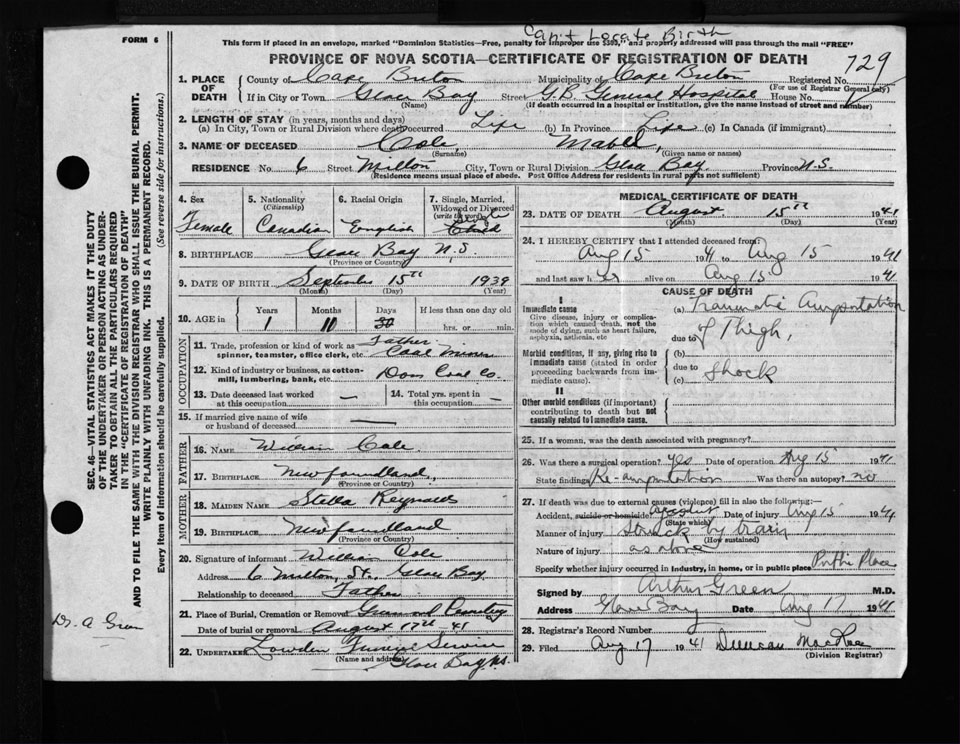 Can't Locate Birth
FORM 6
This form if placed in an envelope, marked "Dominion Statistics—Free, penalty for improper use $300," and property addressed will pass through the mail "FREE"
PROVINCE OF NOVA SCOTIA—CERTIFICATE OF REGISTRATION OF DEATH
729
1. PLACE OF DEATH County of Cape Breton Municipality of Cape Breton Registered No.
(For use of Registrar General only)
If in City or Town Glace Bay Street G.B. General Hospital House No.
(Name) (If death occurred in a hospital or institution, give the name instead of street and number)
2. LENGTH OF STAY (in years, months and days)
(a) In City, Town or Rural Division where death occurred Life (b) In Province Life (c) In Canada (if immigrant)
3. NAME OF DECEASED Cole, Mabel,
(Surname) (Given name or names)
RESIDENCE No. 6 Street Milton City, Town or Rural Division Glace Bay Province N.S.
(Residence means usual place of abode. Post Office Address for residents in rural parts not sufficient)
4. Sex 5. Nationality (Citizenship) 6. Racial Origin 7. Single, Married, Widowed or Divorced (write the word)
Female Canadian English Single Child
8. BIRTHPLACE Glace Bay N.S.
(Province or Country)
9. DATE OF BIRTH September 15TH 1939
(Month) (Day) (Year)
10. AGE in Years Months Days If less than one day old
1 11 30 hrs. or min.
OCCUPATION
11. Trade, profession or kind of work as spinner, teamster, office clerk, etc. Father Coal Miner
12. Kind of industry or business, as cotton-mill, lumbering, bank, etc. Dom Coal Co.
13. Date deceased last worked at this occupation — 14. Total yrs. spent in this occupation —
15. If married give name of wife or husband of deceased —
FATHER
16. NAME William Cole
17. BIRTHPLACE Newfoundland,
(Province or Country)
MOTHER
18. MAIDEN NAME Stella Reynolds
19. BIRTHPLACE Newfoundland
(Province or Country)
20. Signature of informant William Cole
Address 6 Milton, St. Glace Bay
Relationship to deceased Father
21. Place of Burial, Cremation or Removal Cemetery
Date of burial or removal August 17th - 41
22. UNDERTAKER Lowden Funeral Service
(Name and address) Glace Bay N.S.
MEDICAL CERTIFICATE OF DEATH
23. DATE OF DEATH August 15TH 1941
(Month) (Day) (Year)
24. I HEREBY CERTIFY that I attended deceased from
Aug 15 1941 to Aug 15 1941
and last saw her alive on Aug 15 1941
CAUSE OF DEATH
I
Immediate cause
Give disease, injury or complication which caused death, not the mode of dying, such as heart failure, asphyxia, asthenia, etc
(a) Traumatic Amputation
of Thigh,
due to
Morbid conditions, if any, giving rise to immediate cause (stated in order proceeding backwards from immediate cause).
(b)
due to Shock
(c)
II
Other morbid conditions (if important) contributing to death but not causally related to immediate cause.
25. If a woman, was the death associated with pregnancy?
26. Was there a surgical operation? Yes Date of operation Aug 15 1941
State findings Re-amputation Was there an autopsy? no
27. If death was due to external causes (violence) fill in also the following:—
Accident, suicide or homicide accident Date of injury Aug 15 1941
(State which)
Manner of injury Struck by train
(How sustained)
Nature of injury as above
Specify whether injury occurred in industry, in home, or in public place Public Place
Signed by Arthur Green M.D.
Address Glace Bay Date Aug 17 1941
28. Registrar's Record Number
29. Filed Aug 17 1941 Duncan MacRae
(Division Registrar)
SEC. 46—VITAL STATISTICS ACT MAKES IT THE DUTY
OF THE UNDERTAKER OR PERSON ACTING AS UNDER-
TAKER TO OBTAIN ALL THE PARTICULARS REQUIRED
IN THE "CERTIFICATE OF REGISTRATION OF DEATH"
AND TO FILE THE SAME WITH THE DIVISION REGISTRAR WHO SHALL ISSUE THE BURIAL PERMIT.
WRITE PLAINLY WITH UNFADING INK. THIS IS A PERMANENT RECORD.
Every item of information should be carefully supplied. (See reverse side for instructions.)
Dr. A Green